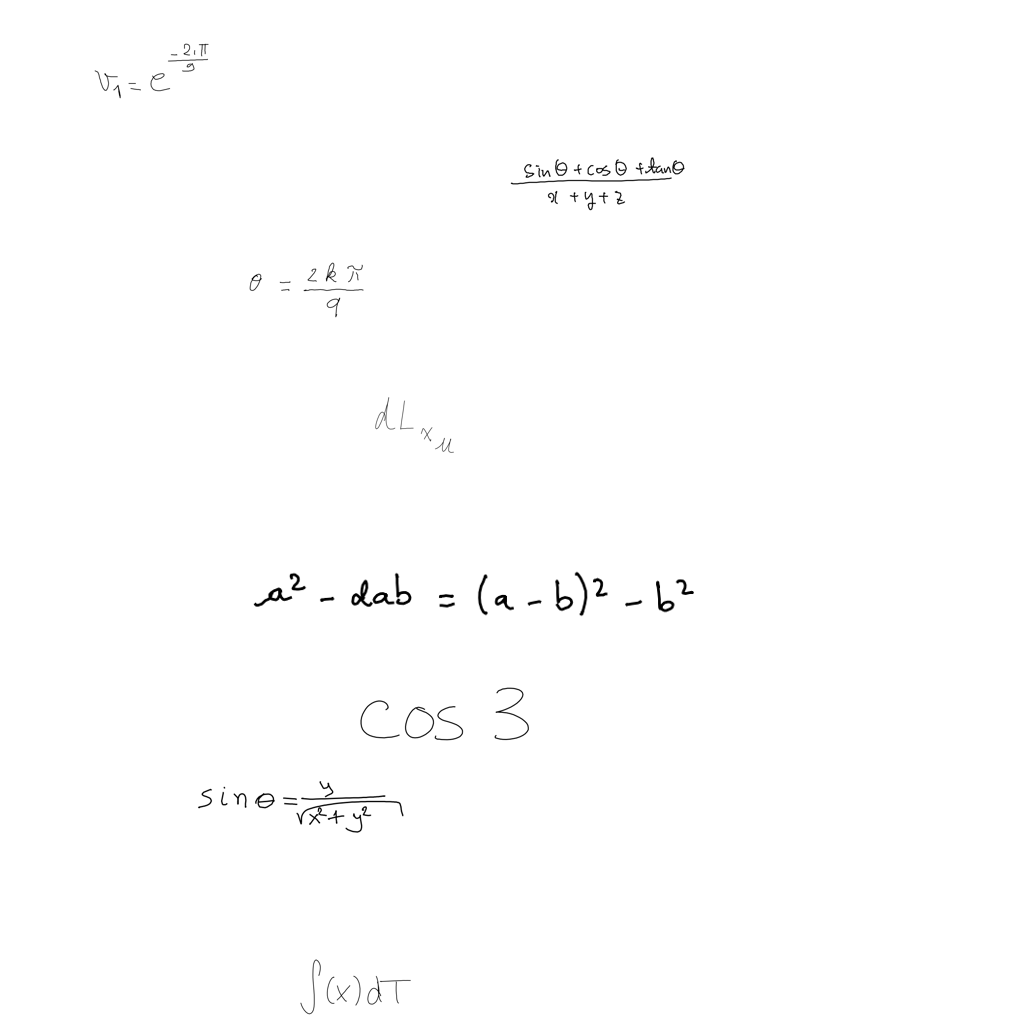 v_1 = e^{\frac{-2iπ}{9}}
\frac{sin θ + cos θ + tan θ}{x + y + z}
θ = \frac{2kπ}{9}
dL_{x_u}
a^2 - dab = (a - b)^2 - b^2
cos 3
sin θ = \frac{y}{\sqrt{x^2 + y^2}}
∫(x) dT